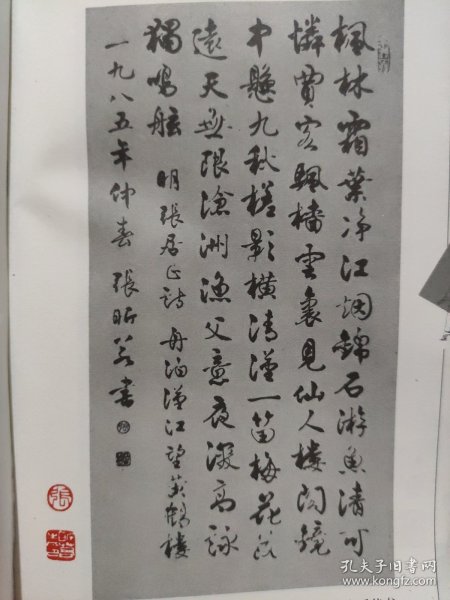 楓林霜葉净江烟錦石游魚清可
憐賈客颿檣雲裏見仙人樓閣鏡
中懸九秋槎影橫清漢一笛梅花落
遠天無限滄洲漁父意夜深高詠
獨鳴舷 明張居正詩 舟泊漢江望黄鶴樓
一九八五年仲春 張昕若書
張
孔夫子旧书网